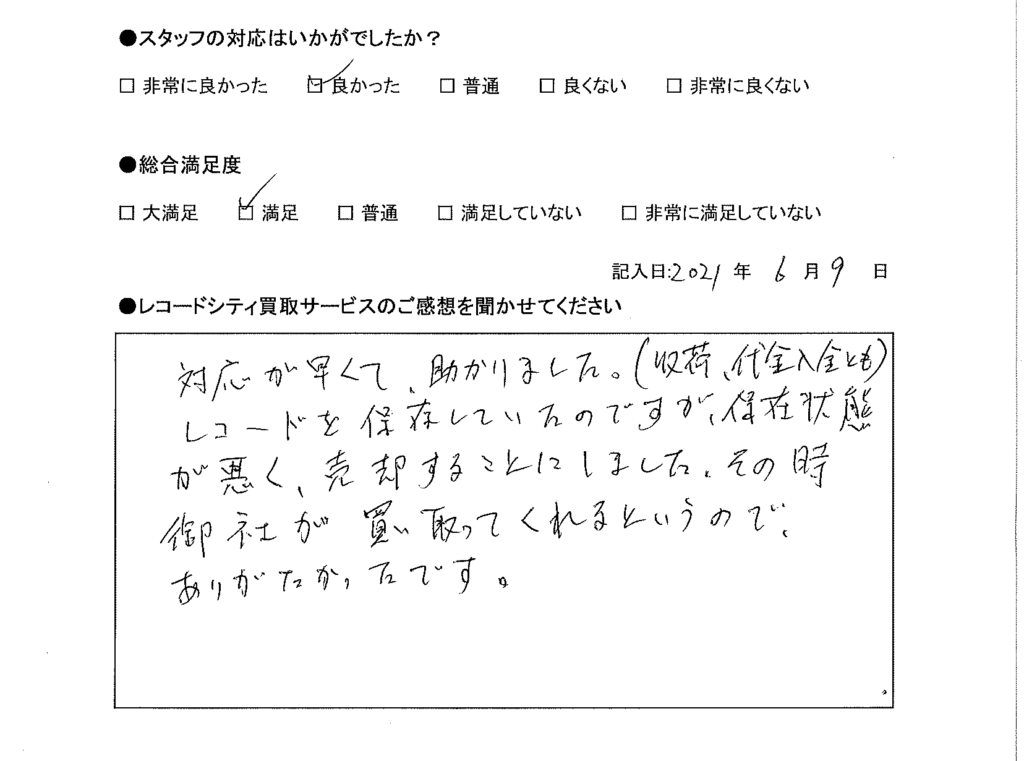 ●スタッフの対応はいかがでしたか？
□ 非常に良かった ☑ 良かった □ 普通 □ 良くない □ 非常に良くない
●総合満足度
□ 大満足 ☑ 満足 □ 普通 □ 満足していない □ 非常に満足していない
記入日:2021 年 6 月 9 日
●レコードシティ買取サービスのご感想を聞かせてください
対応が早くて、助かりました。(収荷、代金入金とも)
レコードを保存していたのですが、保存状態
が悪く、売却することにしました。その時
御社が買い取ってくれるというので、
ありがたかったです。